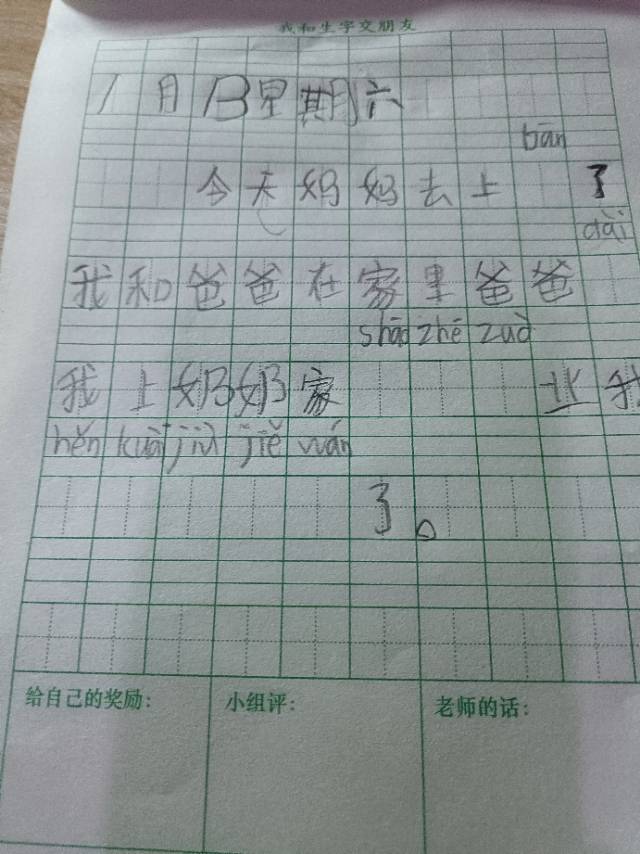 我和生字交朋友
1月13星期六
bān
今天妈妈去上 了
dài
我和爸爸在家里爸爸
shāo zhē zuò
我上奶奶家 业我
hěn kuài jiù jiě
了。
给自己的奖励: 小组评: 老师的话: